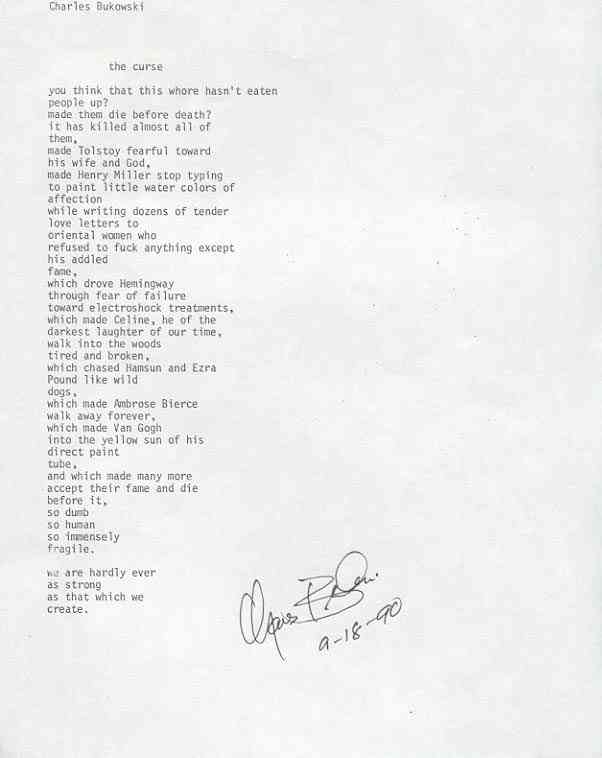 Charles Bukowski
the curse
you think that this whore hasn't eaten
people up?
made them die before death?
it has killed almost all of
them,
made Tolstoy fearful toward
his wife and God,
made Henry Miller stop typing
to paint little water colors of
affection
while writing dozens of tender
love letters to
oriental women who
refused to fuck anything except
his addled
fame,
which drove Hemingway
through fear of failure
toward electroshock treatments,
which made Celine, he of the
darkest laughter of our time,
walk into the woods
tired and broken,
which chased Hamsun and Ezra
Pound like wild
dogs,
which made Ambrose Bierce
walk away forever,
which made Van Gogh
into the yellow sun of his
direct paint
tube,
and which made many more
accept their fame and die
before it,
so dumb
so human
so immensely
fragile.
we are hardly ever
as strong
as that which we
create.
9-18-90